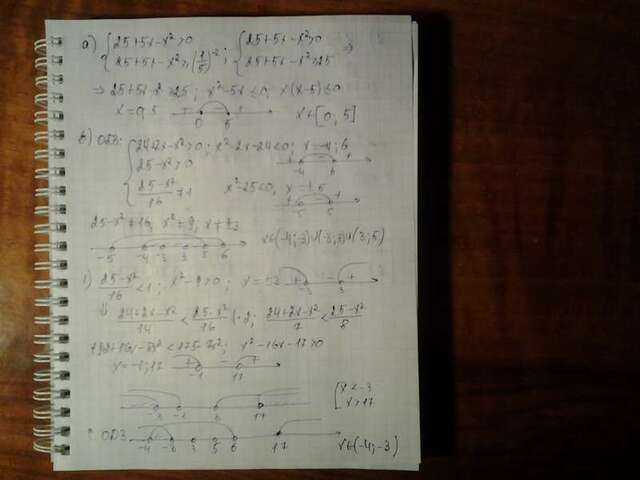 a) { 25+5x-x²>0 ; { 25+5x-x²>0 ⇒
25+5x-x²≥(1/5)⁻² ; 25+5x-x²≥25
⇒ 25+5x-x²≥25; x²-5x≤0; x(x-5)≤0
x=0,5 + - + 0 5 x∈[0,5]
в) ОДЗ: { 24+2x-x²>0; x²-2x-24<0; x=-4;6 + - + -4 6
25-x²>0
(25-x²)/16≠1 x²-25<0, x=±5 + - + -5 5
25-x²≠16, x²≠9; x≠±3
-5 -4 -3 3 5 6 x∈(-4;-3)∪(-3;3)∪(3;5)
1) (25-x²)/16<1; x²-9>0; x=±3 + - + -3 3
⇓ (24+2x-x²)/14 < (25-x²)/16 |·2; (24+2x-x²)/7 < (25-x²)/8
192+16x-8x²<175-7x²; x²-16x-17>0
x=-1;17 + - + -1 17
-3 -1 17 [ x<-3
x>17
ОДЗ -4 -3 3 5 6 17 x∈(-4;-3)